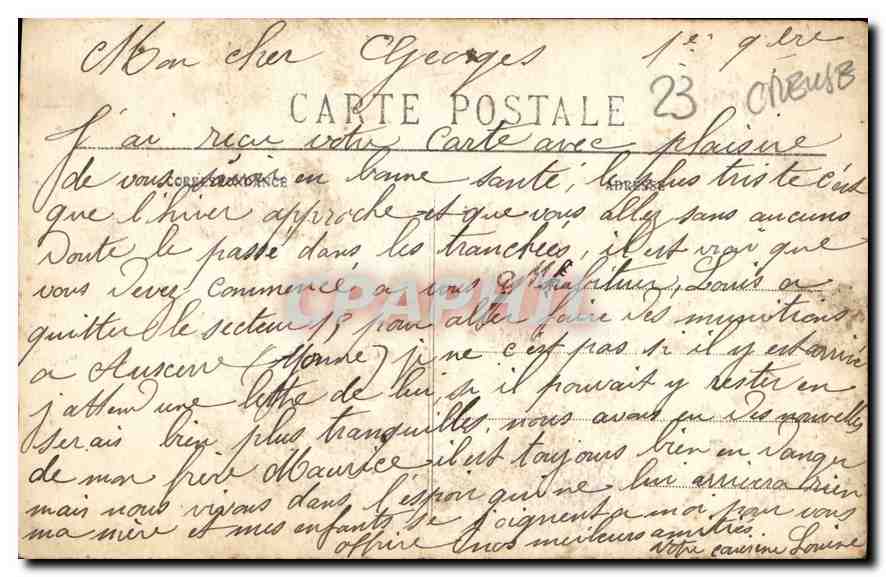 Mon cher Georges
23 CREUSE
CARTE POSTALE
J'ai reçu votre carte avec plaisire
CORRESPONDANCE ADRESSE
de vous savoir en bonne santé, le plus triste c'est
que l'hiver approche et que vous allez sans aucuns
doute le passé dans les tranchées, il est vrai que
vous devez commencé a vous habituer, Louis a
quitter le secteur 15 pour aller faire des munitions
a Auxerre (Yonne) je ne c'est pas si il y est arrivé
j'attend une lettre de lui, si il pouvait y rester en
serais bien plus tranquilles, nous avons eu des nouvelles
de mon frère Maurice il est toujours bien en danger
mais nous vivons dans l'espoir qui ne lui arrivera rien
ma mère et mes enfants se joignent a moi pour vous
offrire nos meilleurs amitiés
Votre cousine Louise
CPAPHIL